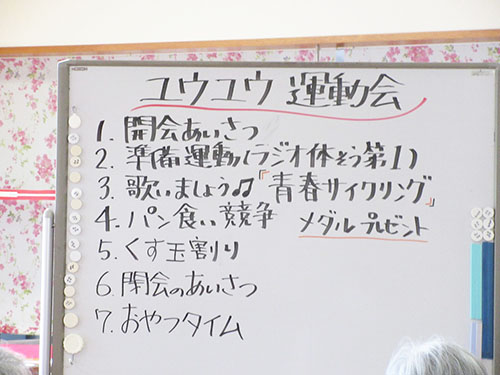 ユウユウ 運動会
1. 開会あいさつ
2. 準備運動(ラジオ体そう第1)
3. 歌いましょう♫「青春サイクリング」
4. パン食い競争 メダルプレゼント
5. くす玉割り
6. 閉会のあいさつ
7. おやつタイム